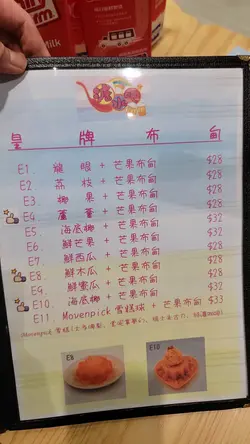 Milk
皇牌布甸
E1. 龍眼 + 芒果布甸 $28
E2 荔枝 + 芒果布甸 $28
E3. 椰果 + 芒果布甸 $28
E4 蘆薈 + 芒果布甸 $28
E5. 海底椰 + 芒果布甸 $32
E6. 鮮芒果 + 芒果布甸 $28
E7. 鮮西瓜 + 芒果布甸 $28
E8 鮮木瓜 + 芒果布甸 $28
E9. 鮮蜜瓜 + 芒果布甸 $28
E10. 海底椰 + 芒果布甸 $32
E11. Movenpick 雪糕球 + 芒果布甸 $33
Movenpick 雪糕
E8
E10